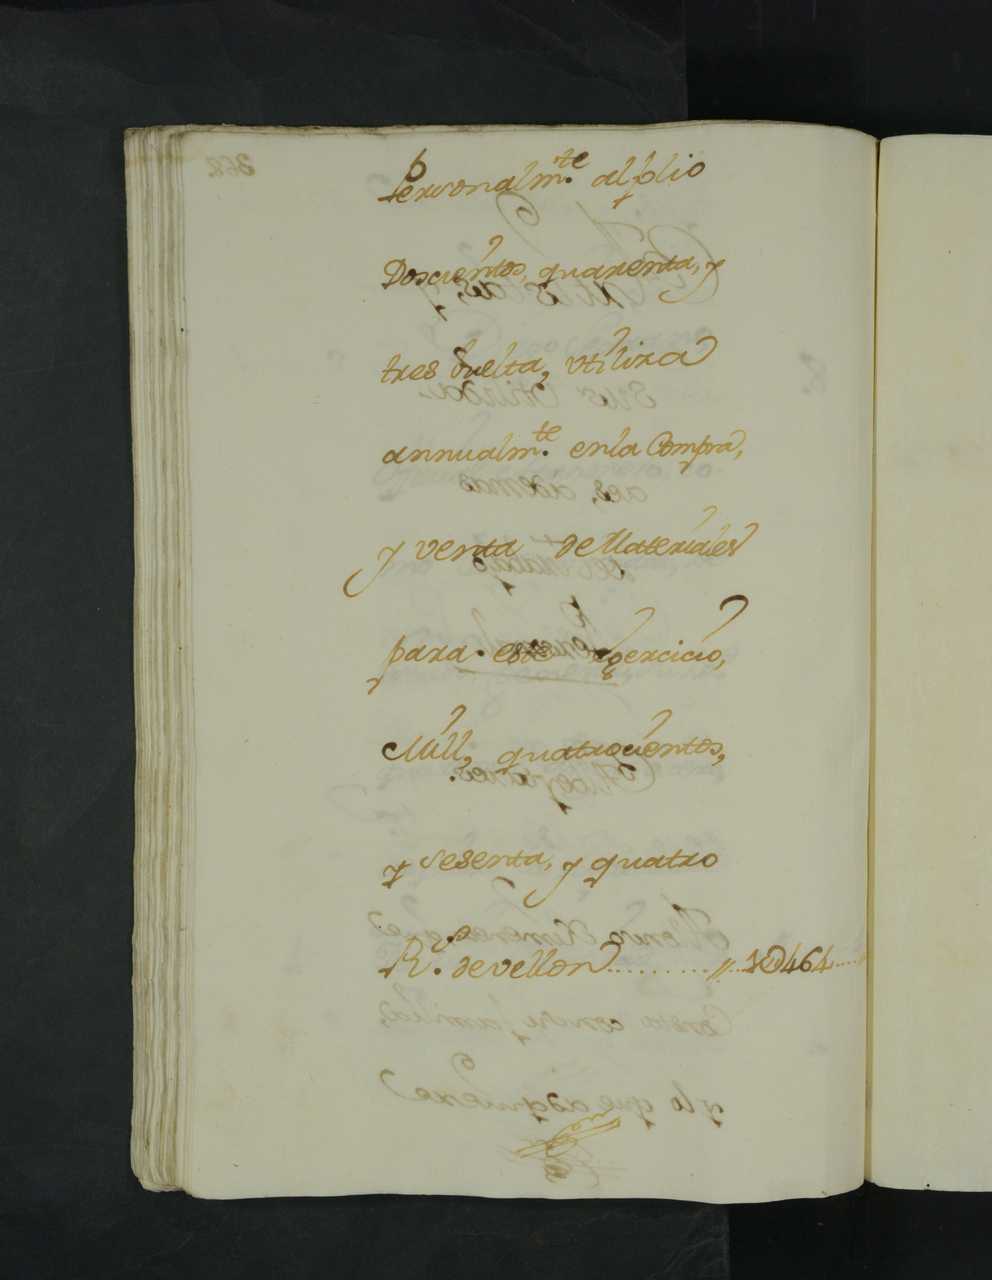 Personalm.te al folio
Doscientos, quarenta, y
tres buelta, vtiliza
annualm.te en la Compra,
y venta de Materiales
para este Egercicio,
Mill, quatrocientos,
y sesenta, y quatro
R.s de vellon .......... 1U464